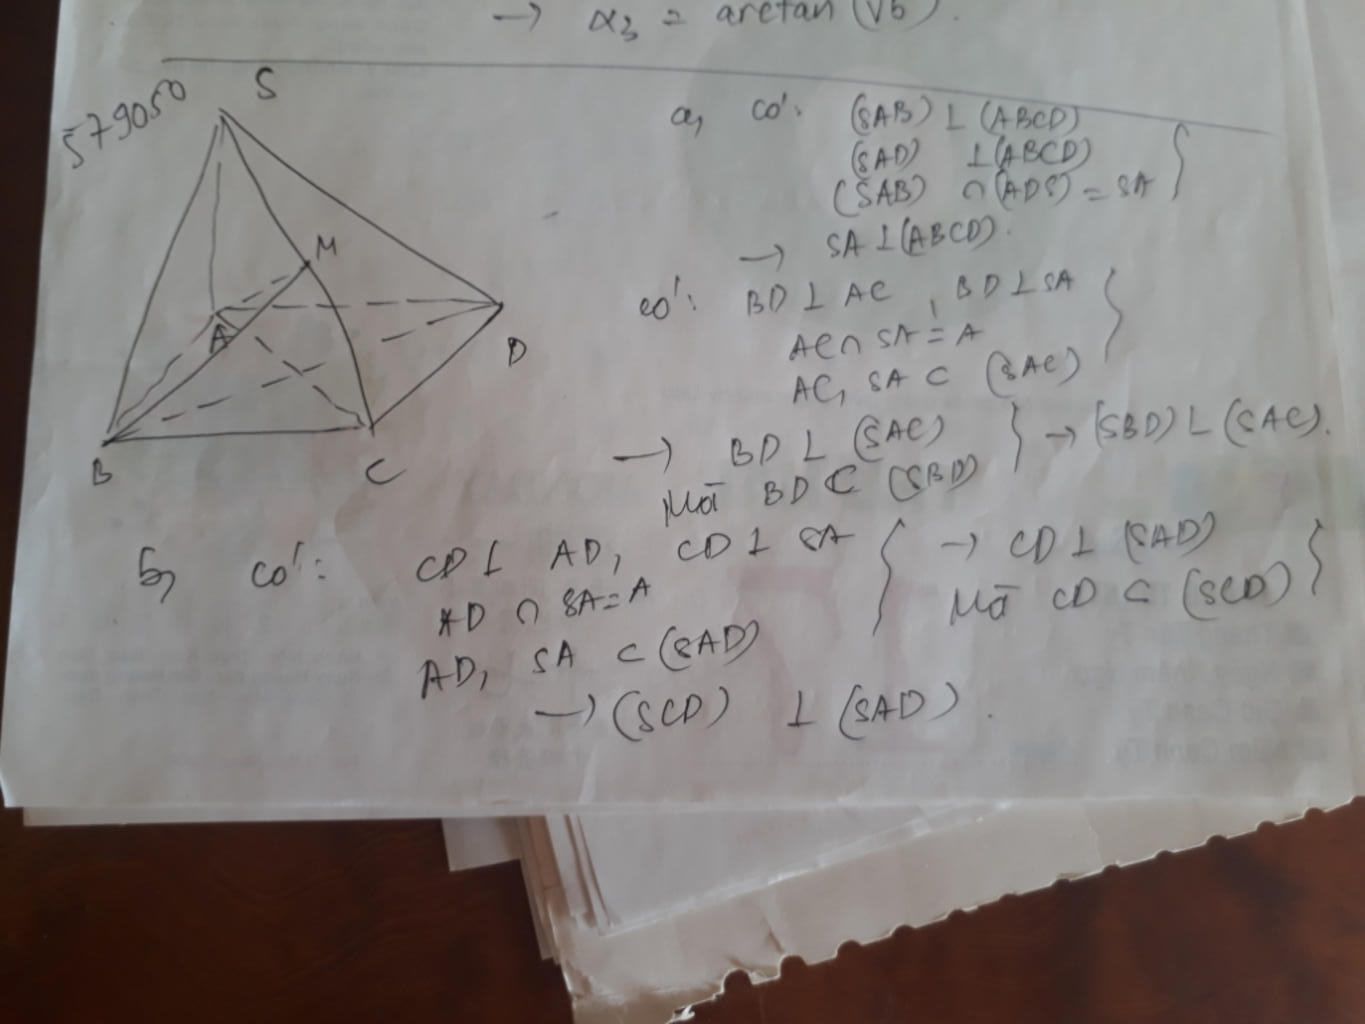 → α₃ = arctan (√6).
579050
S
M
A
D
B
C
a, có: (SAB) ⊥ (ABCD)
(SAD) ⊥ (ABCD)
(SAB) ∩ (ADS) = SA }
→ SA ⊥ (ABCD).
có: BD ⊥ AC, BD ⊥ SA
AC ∩ SA = A
AC, SA ⊂ (SAC) }
→ BD ⊥ (SAC) } → (SBD) ⊥ (SAC).
Mà BD ⊂ (SBD)
b, có: CD ⊥ AD, CD ⊥ SA { → CD ⊥ (SAD) }
AD ∩ SA = A Mà CD ⊂ (SCD)
AD, SA ⊂ (SAD)
→ (SCD) ⊥ (SAD).